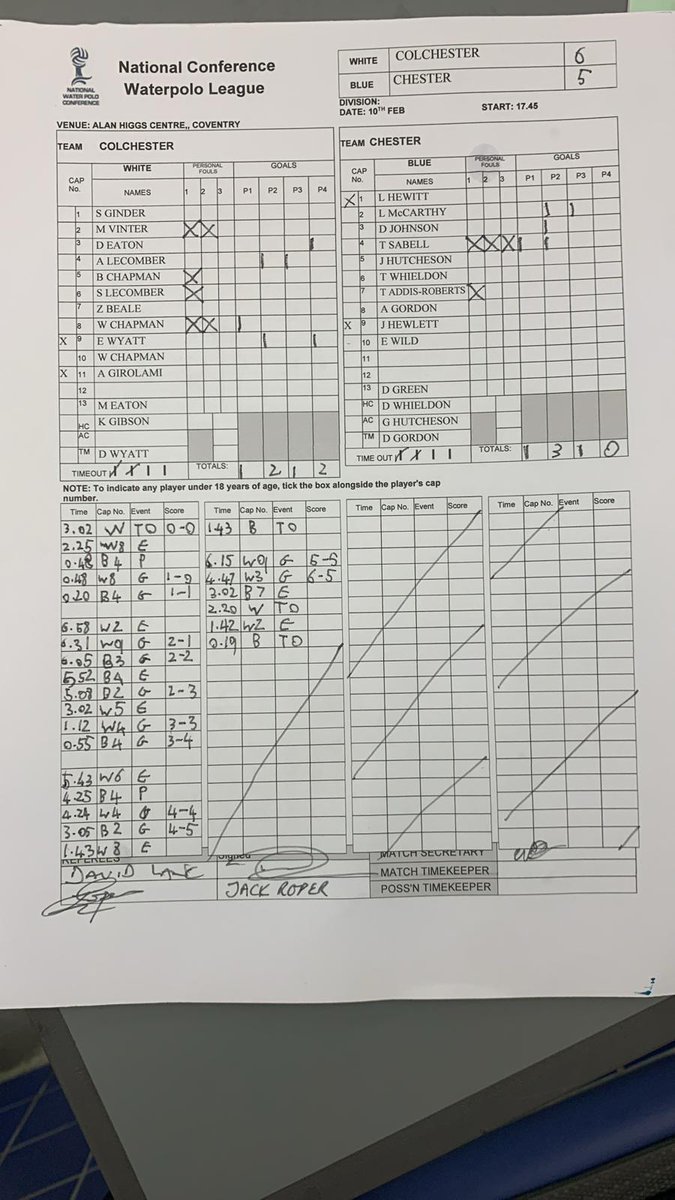 National Conference
Waterpolo League
NATIONAL
WATER POLO
CONFERENCE
WHITE COLCHESTER 6
BLUE CHESTER 5
DIVISION:
DATE: 10TH FEB START: 17.45
VENUE: ALAN HIGGS CENTRE,, COVENTRY
TEAM COLCHESTER
CAP No. WHITE PERSONAL FOULS GOALS
NAMES 1 2 3 P1 P2 P3 P4
1 S GINDER
2 M VINTER X X
3 D EATON I
4 A LECOMBER I I
5 B CHAPMAN X
6 S LECOMBER X
7 Z BEALE
8 W CHAPMAN X X I
X 9 E WYATT I I
10 W CHAPMAN
X 11 A GIROLAMI
12
13 M EATON
HC K GIBSON
AC
TM D WYATT
TIMEOUT X X I I TOTALS: 1 2 1 2
TEAM CHESTER
CAP No. BLUE PERSONAL FOULS GOALS
NAMES 1 2 3 P1 P2 P3 P4
X 1 L HEWITT
2 L McCARTHY I I
3 D JOHNSON I
4 T SABELL X X X I I
5 J HUTCHESON
6 T WHIELDON
7 T ADDIS-ROBERTS X
8 A GORDON
X 9 J HEWLETT
10 E WILD
11
12
13 D GREEN
HC D WHIELDON
AC G HUTCHESON
TM D GORDON
TIME OUT X X I I TOTALS: 1 3 1 0
NOTE: To indicate any player under 18 years of age, tick the box alongside the player's cap
number.
Time Cap No. Event Score
3.02 W TO 0-0
2.25 W8 E
0.48 B4 P
0.48 W8 G 1-0
0.20 B4 G 1-1
6.58 W2 E
6.31 W9 G 2-1
6.05 B3 G 2-2
5.52 B4 E
5.08 B2 G 2-3
3.02 W5 E
1.12 W4 G 3-3
0.55 B4 G 3-4
5.43 W6 E
4.25 B4 P
4.24 W4 G 4-4
3.05 B2 G 4-5
1.43 W8 E
Time Cap No. Event Score
1.43 B TO
6.15 W9 G 5-5
4.47 W3 G 6-5
3.02 B7 E
2.20 W TO
1.42 W2 E
0.19 B TO
Time Cap No. Event Score
Time Cap No. Event Score
REFEREES Signed MATCH SECRETARY
DAVID LANE MATCH TIMEKEEPER
JACK ROPER POSS'N TIMEKEEPER